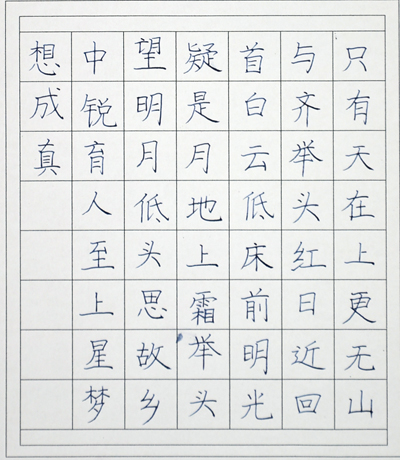 只有天在上更无山
与齐举头红日近回
首白云低床前明光
疑是月地上霜举头
望明月低头思故乡
中锐育人至上星梦
想成真